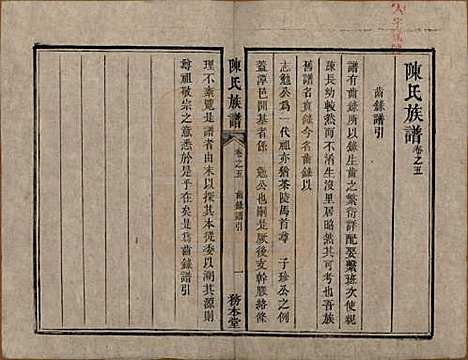 陳氏族譜卷之五
齒錄譜引
譜有齒錄所以錄生齒之繁衍詳配娶繫班次使親
疎長幼較然而不淆生沒具昭嗣續可攷也吾族
舊譜名真錄今名齒錄以
志勉公為一代祖亦猶茶陵馬首尋 子珍公之例
蓋潭邑開基者係 勉公也嗣是厥後支幹縷絡條
陳氏族譜 卷之五 齒錄譜引 一 務本堂
理不紊覽是譜者由末以探本從委以溯其源則
尊祖敬宗之意悉於是乎在矣是為齒錄譜引